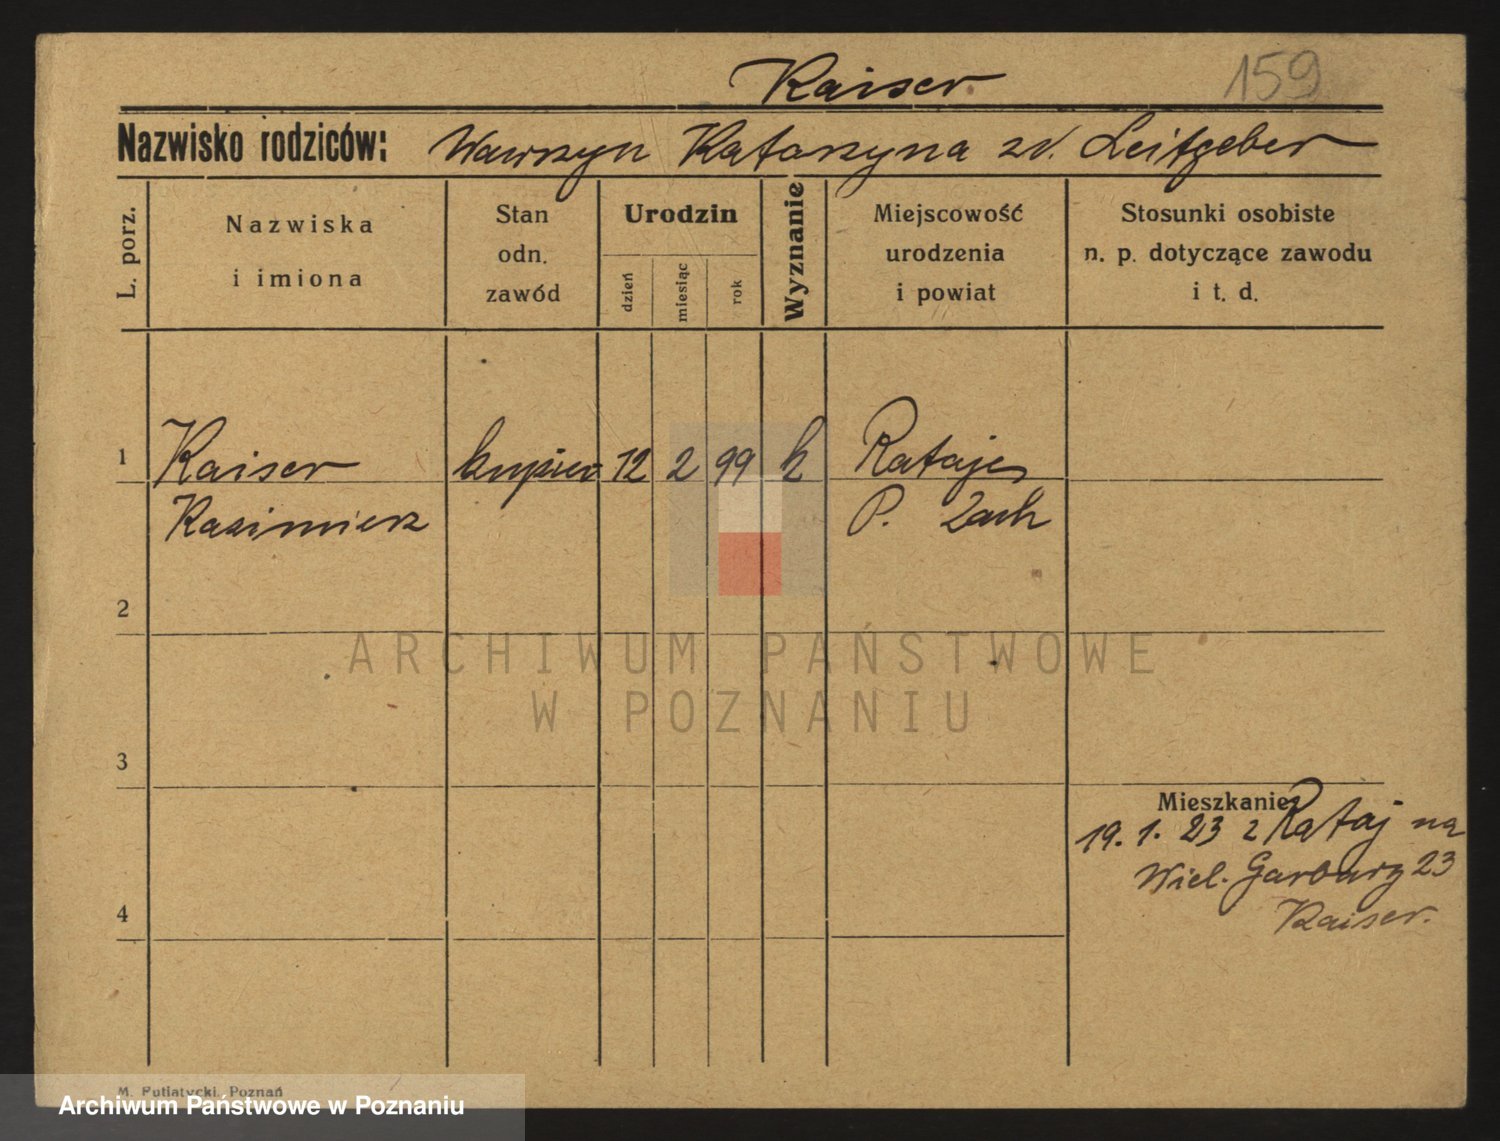 Kaiser 159
Nazwisko rodziców: Wawrzyn Katarzyna zd. Leitgeber
L. porz.
Nazwiska
i imiona
Stan
odn.
zawód
Urodzin
dzień
miesiąc
rok
Wyznanie
Miejscowość
urodzenia
i powiat
Stosunki osobiste
n. p. dotyczące zawodu
i t. d.
1 Kaiser kupiec 12 2 99 k Rataje
Kazimierz P. Zach
2
3
ARCHIWUM PAŃSTWOWE
W POZNANIU
Mieszkanie
19. 1. 23 z Rataj na
Wiel. Garbary 23
Kaiser.
4
M. Putiatycki, Poznań
Archiwum Państwowe w Poznaniu